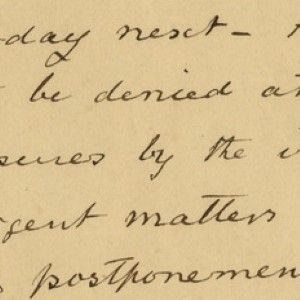 -day next -
be denied at
sures by the
gent matters
postponemen